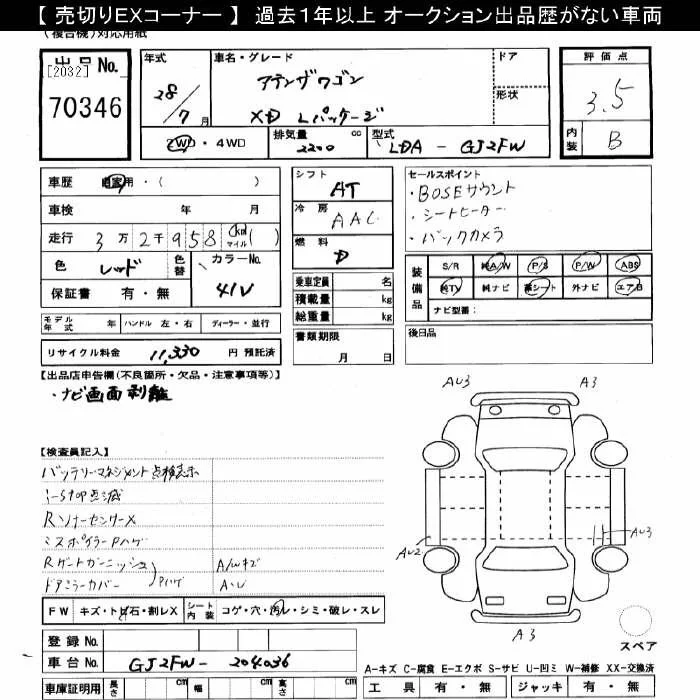 【 売切りEXコーナー 】 過去1年以上 オークション出品歴がない車両
(複合機)対応用紙
出品No.
[2032]
70346
年式
28/7月
車名・グレード
アテンザワゴン
XD Lパッケージ
ドア
形状
評価点
3.5
内装
B
2WD・4WD
排気量
2200 cc
型式
LDA - GJ2FW
車歴 自家用・( )
車検 年 月
走行 3万2千958 (km マイル)( )
色 レッド 色替
カラーNo.
41V
保証書 有・無
シフト
AT
冷房
AAC
燃料
D
乗車定員 名
積載量 kg
総重量 kg
書類期限
月 日
セールスポイント
・BOSEサウント
・シートヒーター
・バックカメラ
装備品
S/R 純A/W P/S P/W ABS
純TV 純ナビ 革シート 外ナビ エアB
ナビ型番:
後日品
モデル年式 年 ハンドル 左・右 ディーラー・並行
リサイクル料金 11,330 円 預託済
【出品店申告欄(不良箇所・欠品・注意事項等)】
・ナビ画面剥離
【検査員記入】
バッテリーマネジメント点検表示
i-stop点滅
Rソナーセンサー×
ミスポイラーPハゲ
Rゲートガーニッシュ
ドアミラーカバー
Pハゲ
A/Wキズ
A・U
AU3
A3
AU2
AU3
A3
スペア
FW キズ・トビ石・割レX シート内装 コゲ・穴・汚レ・シミ・破レ・スレ
登録No.
車台No. GJ2FW- 204036
車庫証明用 長さ cm 幅 cm 高さ cm
A-キズ C-腐食 E-エクボ S-サビ U-凹ミ W-補修 XX-交換済
工具 有・無 ジャッキ 有・無